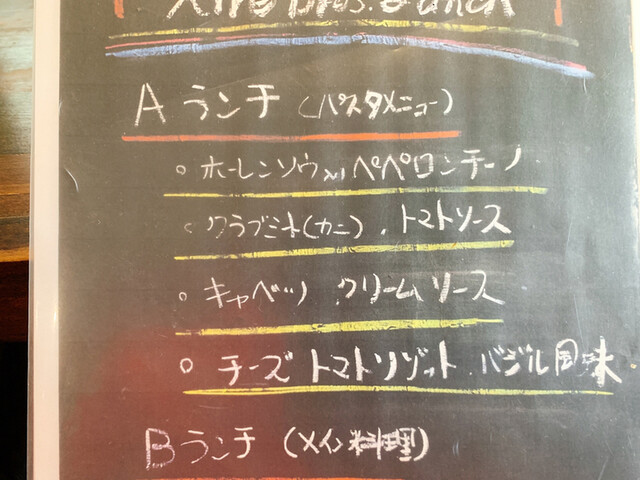 Aランチ(パスタメニュー)
○ホーレンソウ入りペペロンチーノ
○クラブミート(カニ).トマトソース
○キャベツ クリームソース
○チーズトマトリゾット.バジル風味
Bランチ(メイン料理)